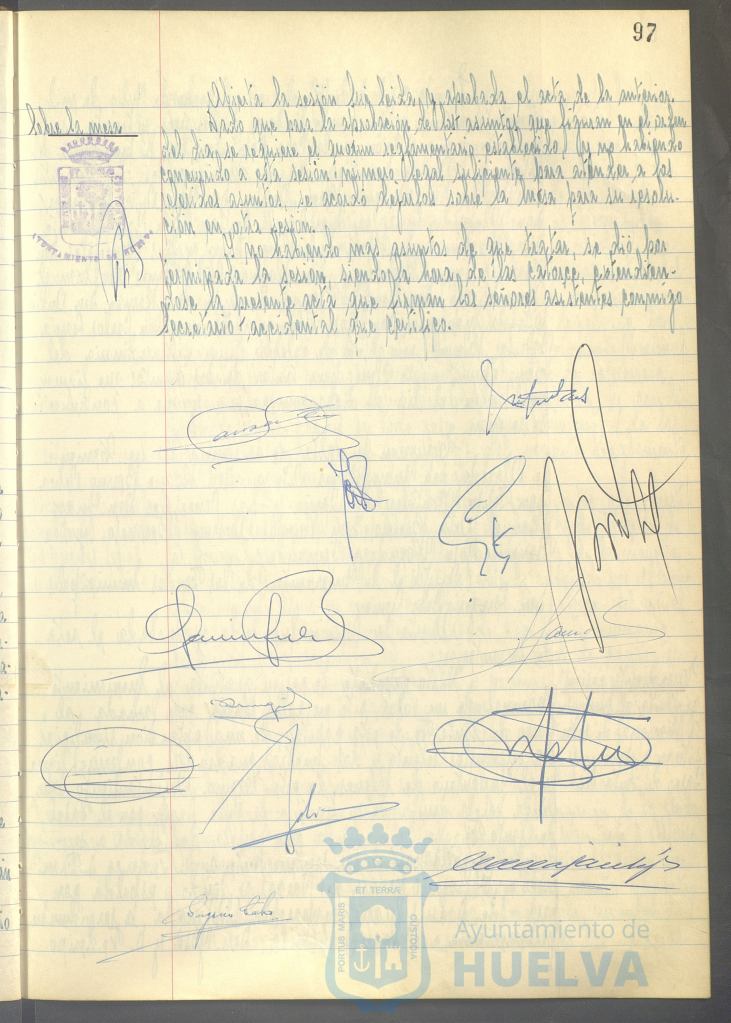 97
Abierta la sesión fué leida y aprobada el acta de la anterior.
Sobre la mesa
Dado que para la aprobación de los asuntos que figuran en el orden
del dia, se requiere el quorum reglamentario establecido, y no habiendo
concurrido a esta sesión número legal suficiente para atender a los
referidos asuntos, se acordó dejarlos sobre la mesa para su resolu-
ción en otra sesión.
Y no habiendo mas asuntos de que tratar, se dió por
terminada la sesión, siendo la hora de las catorce, extendien-
dose la presente acta que firman los señores asistentes conmigo
Secretario accidental que certifico.
ET TERRÆ
PORTUS MARIS
CUSTODIA
Ayuntamiento de
HUELVA